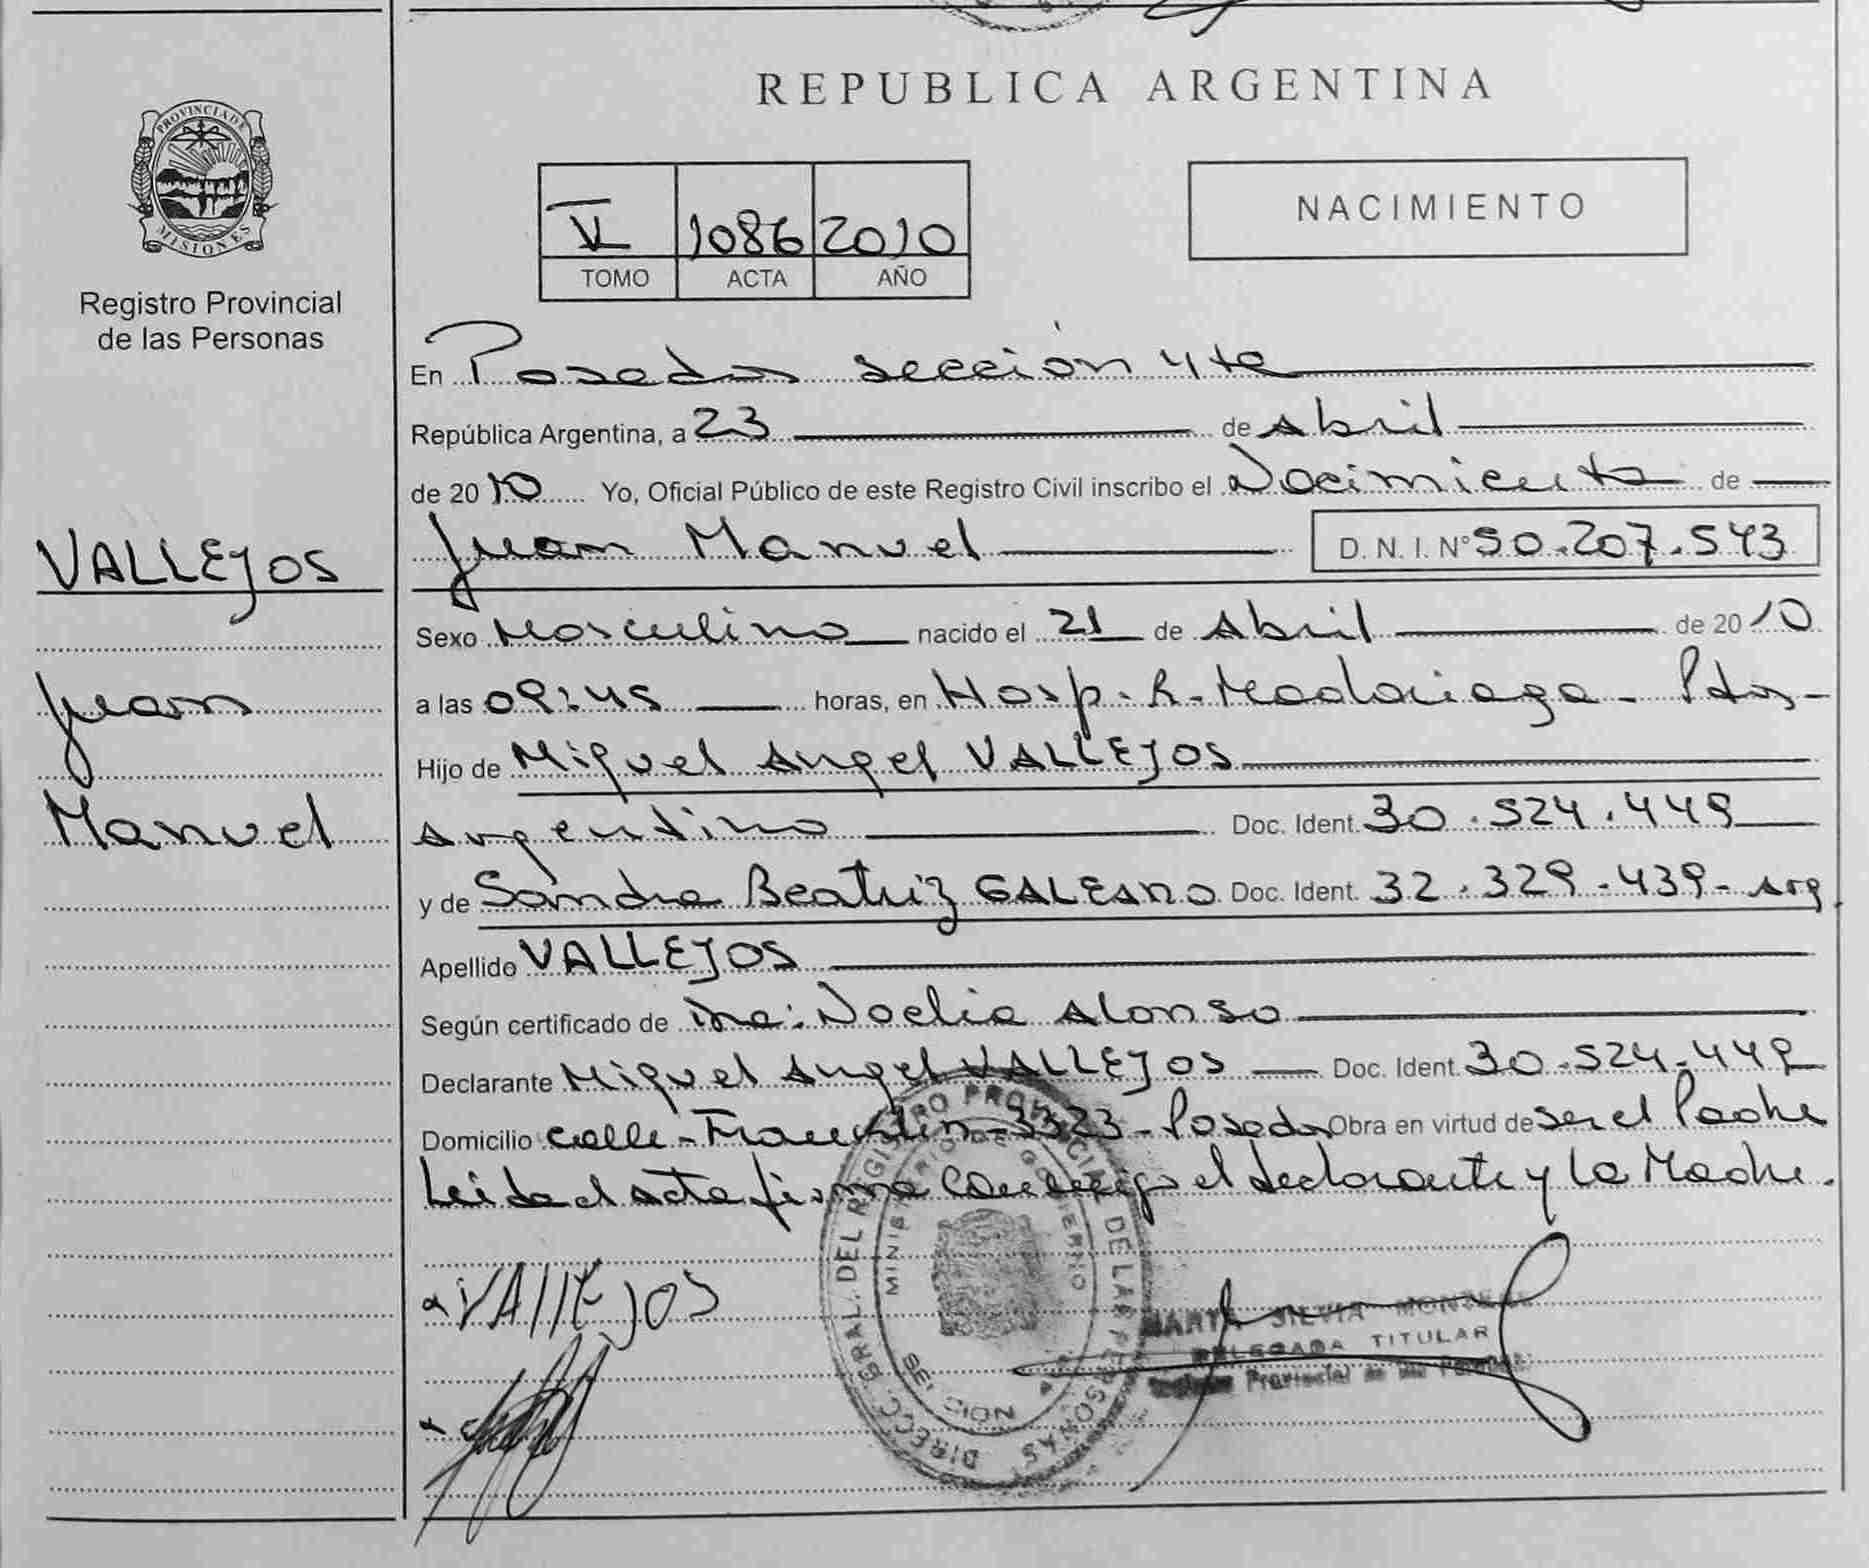 REPUBLICA ARGENTINA
PROVINCIA DE MISIONES
Registro Provincial
de las Personas
1086 2010
TOMO ACTA AÑO
NACIMIENTO
En Posadas sección 4ta
República Argentina, a 23 de Abril
de 2010 Yo, Oficial Público de este Registro Civil inscribo el Nacimiento de
VALLEJOS
Juan
Manuel
Juan Manuel D. N. I. Nº 50.207.543
Sexo Masculino nacido el 21 de Abril de 2010
a las 09:45 horas, en Hosp. R. Madariaga - Pdas -
Hijo de Miguel Angel VALLEJOS
Argentino Doc. Ident. 30.524.449
y de Sandra Beatriz GALEANO Doc. Ident. 32.329.439 - Arg.
Apellido VALLEJOS
Según certificado de Noelia Alonso
Declarante Miguel Angel VALLEJOS Doc. Ident. 30.524.449
Domicilio calle - Franklin - 3323 - Posadas Obra en virtud de ser el Padre
Leida el acta firma conmigo el declarante y la Madre.
VALLEJOS
DIRECC. GRAL. DEL REGISTRO PROVINCIAL DE LAS PERSONAS
MINISTERIO DE GOBIERNO
SECCION
MARTA SILVIA
DELEGADA TITULAR
Provincial de las Personas